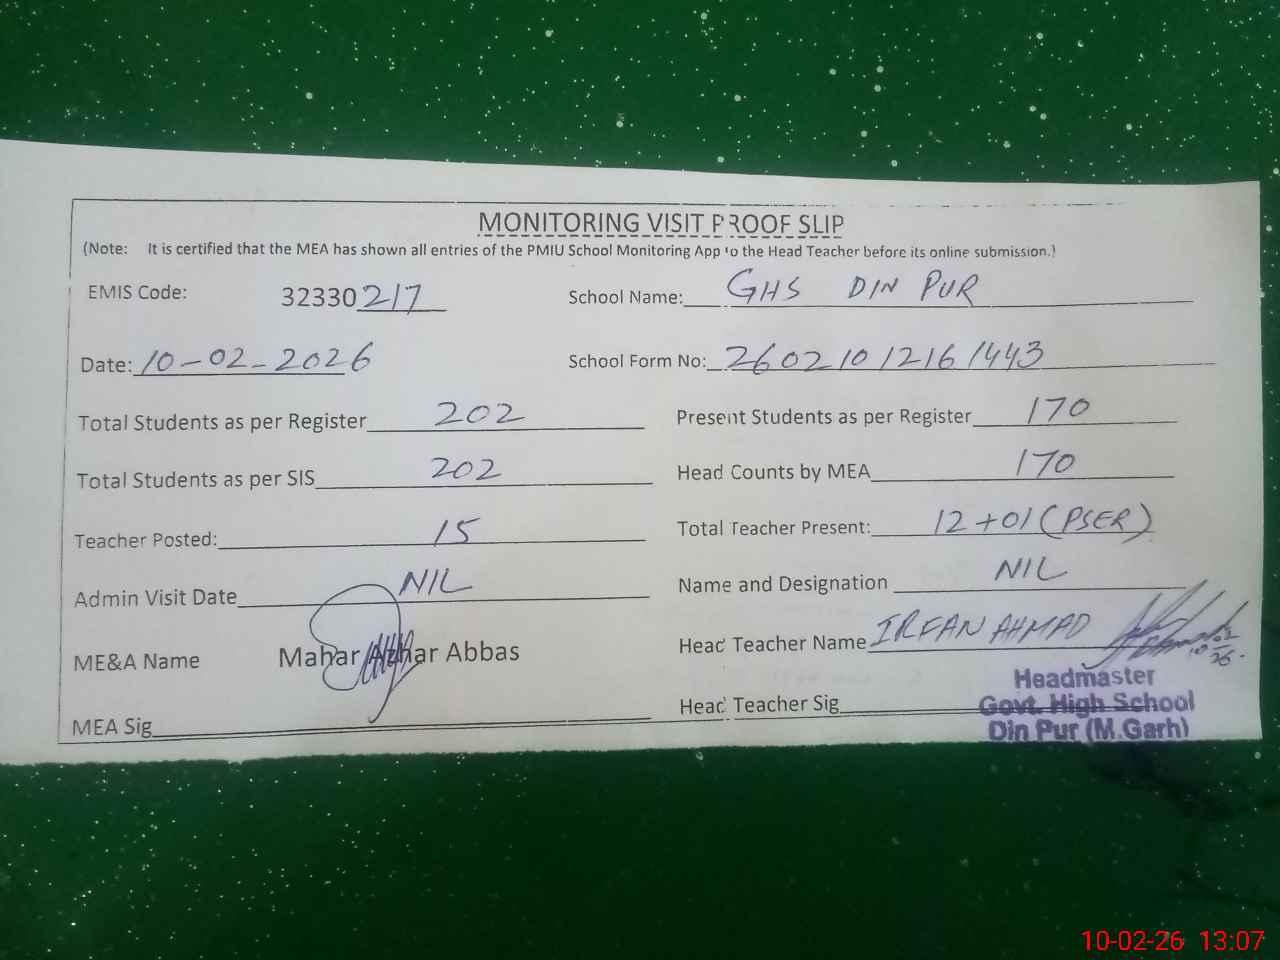 MONITORING VISIT PROOF SLIP
(Note: It is certified that the MEA has shown all entries of the PMIU School Monitoring App to the Head Teacher before its online submission.)
EMIS Code: 32330217 School Name: GHS DIN PUR
Date: 10-02-2026 School Form No: 26021012161443
Total Students as per Register 202 Present Students as per Register 170
Total Students as per SIS 202 Head Counts by MEA 170
Teacher Posted: 15 Total Teacher Present: 12+01(PSER)
Admin Visit Date NIL Name and Designation NIL
ME&A Name Mahar Azhar Abbas Head Teacher Name IRFAN AHMAD
MEA Sig Head Teacher Sig
Headmaster
Govt. High School
Din Pur (M.Garh)
10-02-26 13:07